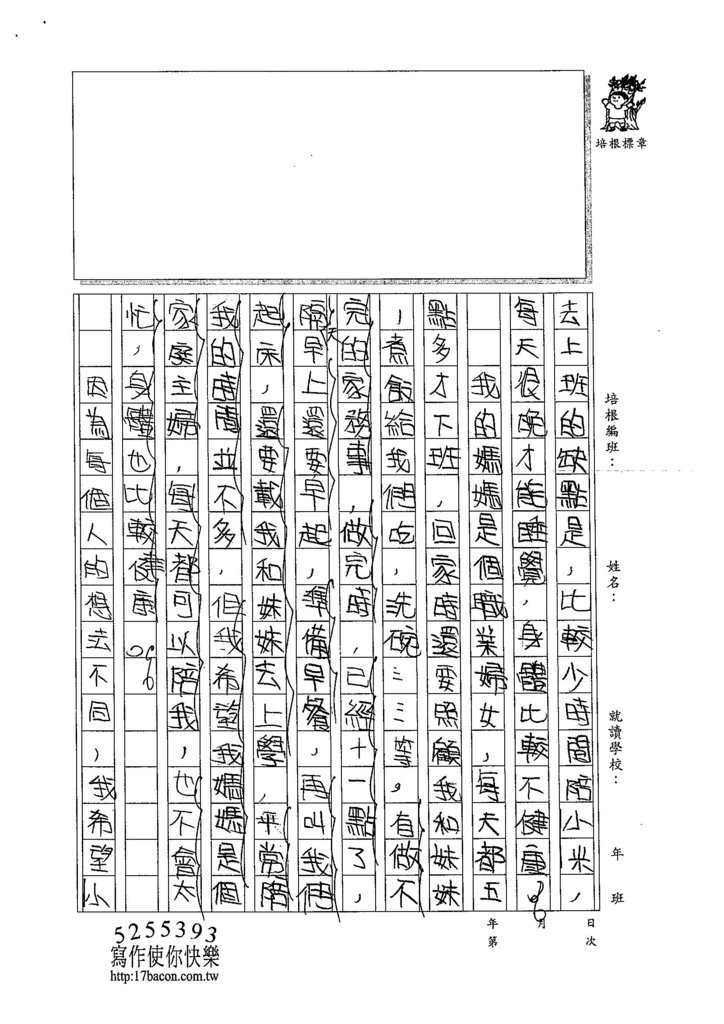 培根標章
培根編班：
姓名：
就讀學校：
年
班
年
月
日
第
次
去上班的缺點是，比較少時間陪小米，
每天很晚才能睡覺，身體比較不健康。
我的媽媽是個職業婦女，每天都五
點多才下班，回家時還要照顧我和妹妹
，煮飯給我們吃，洗碗……等。有做不
完的家務事，做完時，已經十一點了，
隔天早上還要早起，準備早餐，再叫我們
起床，還要載我和妹妹去上學，平常陪
我的時間並不多，但我希望我媽媽是個
家庭主婦，每天都可以陪我，也不會太
忙，身體也比較健康。
因為每個人的想法不同，我希望小
5255393
寫作使你快樂
http:17bacon.com.tw